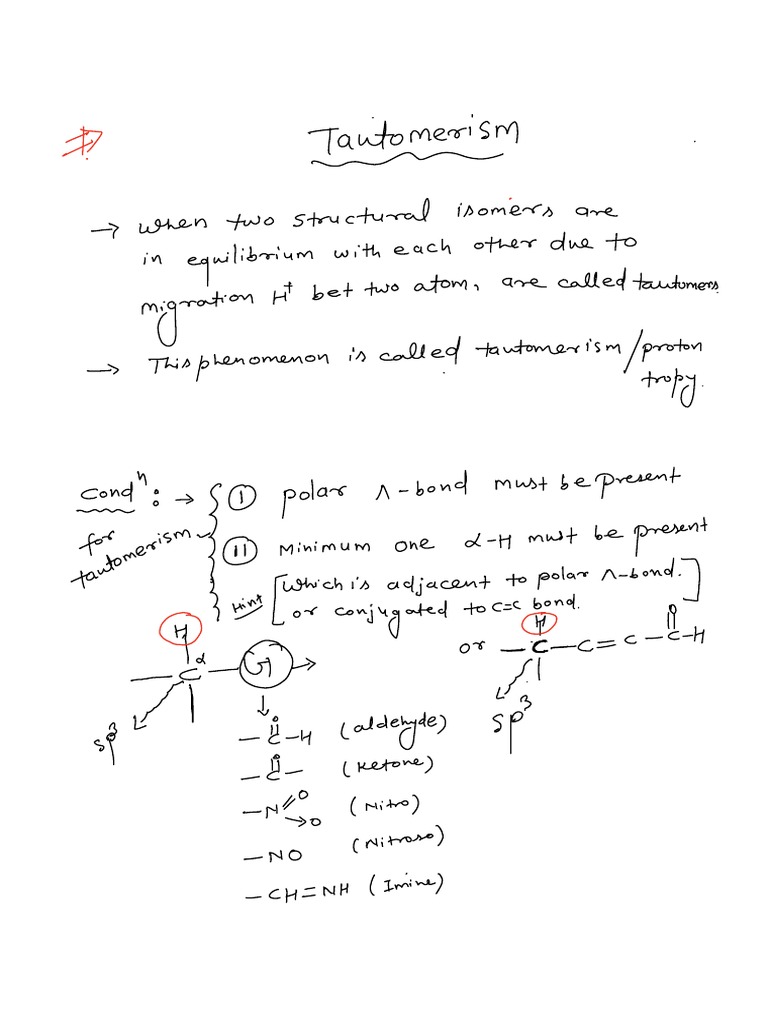 Tautomerism
→ When two structural isomers are
in equilibrium with each other due to
migration H⁺ bet two atom, are called tautomers
→ This phenomenon is called tautomerism/proton
tropy.
Condⁿ : → I polar Λ-bond must be present
for tautomerism
II Minimum one α-H must be present
Hint [Which is adjacent to polar Λ-bond.
or conjugated to C=C bond.]
H
—C^α—G→
sp³
or H
—C—C=C—C(=O)—H
sp³
—C(=O)—H (aldehyde)
—C(=O)— (Ketone)
—N(=O)→O (Nitro)
—NO (Nitroso)
—CH=NH (Imine)